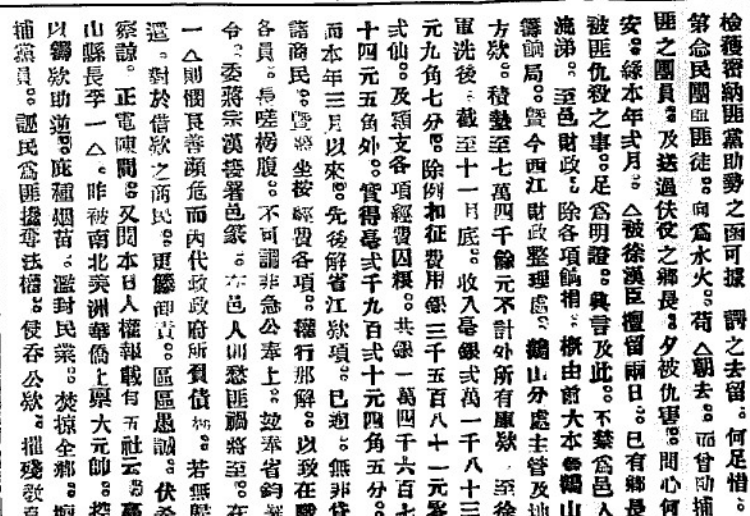 檢獲密納匪黨助勢之函可據　謂之去留。何足惜。
第念民團匪徒。向爲水火。苟△朝去。而曾助捕
匪之團員。及送過伏役之鄉長。夕被仇害。問心何
安。緣本年弍月。△被徐漢臣擅留兩日。已有鄉長
被匪仇殺之事。足爲明證。興言及此。不禁爲邑人
流涕。至邑財政。除各項餉捐。概由前大本營鶴山
籌餉局。暨今西江財政整理處。鶴山分處主管及地
方欵。積墊至七萬四千餘元不計外所有庫欵　至徐
軍洗後　截至十一月底。收入毫銀弍萬一千八十三
元九角七分。除例扣征費用銀三千五百八十一元
弍仙。及額支各項經費囚糧。共銀一萬四千六百七
十四元五角外。實得毫弍千九百弍十元四角五分。
而本年三月以來。先後解省江欵項。已逾　無非貸
諸商民。暨將坐按經費各項。權行那解。以致在職
各員。長嗟枵腹。不可謂非急公奉上。玆奉省鈞
令。委蔣宗漢接署邑篆。在邑人則愁匪禍將至。在
一△則憫良善瀕危而內代政政府所負債　。若無歸
還。對於借欵之商民。更難卸責。區區愚誠。伏希
察諒。正電陳間。又閱本日人權報載有五社云。
山縣長李一△。昨被南北美洲華僑上禀大元帥。控
以籌欵助逆。庇種烟苗。濫封民業。焚掠全鄉。
捕黨員。誣民爲匪擾奪法權。侵吞公欵。摧殘敎